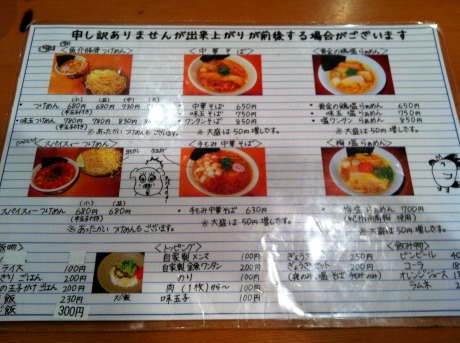 申し訳ありませんが出来上がりが前後する場合がございます
<魚介豚骨つけめん>
(小) (並) (中) (大)
・つけめん 680円 680円 730円
・味玉つけめん 780円 780円 830円
※あたたかいつけめんもございます。
<中華そば>
・中華そば 650円
・味玉そば 750円
・ワンタンそば 850円
※大盛は50円増しです。
<黄金の鶏塩らぁめん>
・黄金の鶏塩らぁめん 650円
・味玉塩らぁめん 750円
・塩ワンタンらぁめん 850円
※大盛は50円増しです。
<スパイスィーつけめん>
(小) (並)
スパイスィーつけめん 680円 680円
※あったかいつけめんもございます。
<手もみ中華そば>
・手もみ中華そば 630円
※大盛は50円増しです。
<梅塩らぁめん>
梅塩らぁめん 700円
(紀州南高梅 使用)
※大盛は50円増しです。
ライス 100円
ごはん 200円
玉子かけごはん 200円
飯 230円
300円
<トッピング>
自家製メンマ 100円
自家製ワンタン 200円
のり 100円
肉(1枚)が〜 100円
味玉子 100円
ぎょうざ 250円
ぎょうざセット 200円
<飲み物>
ビンビール
コーラ
オレンジジュース
ラムネ